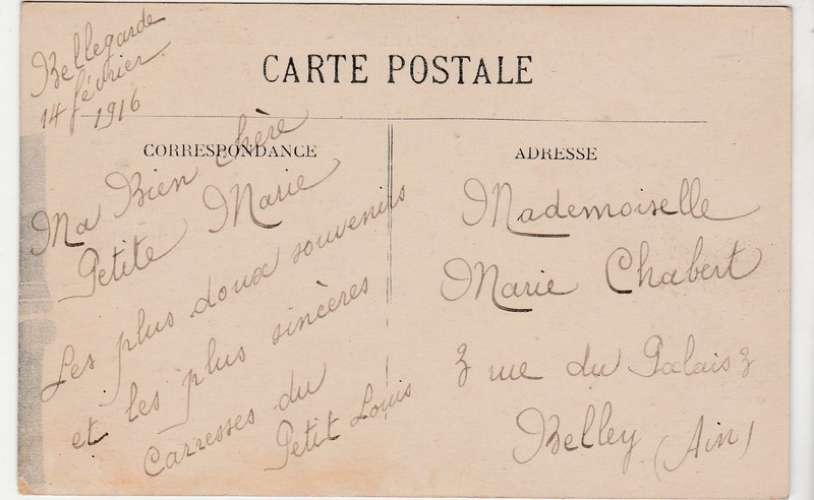 Bellegarde
14 février
1916
CARTE POSTALE
CORRESPONDANCE
Ma Bien chère
Petite Marie
Les plus doux souvenirs
et les plus sincères
Carresses du
Petit Louis
ADRESSE
Mademoiselle
Marie Chabert
3 rue du Palais 3
Belley (Ain)